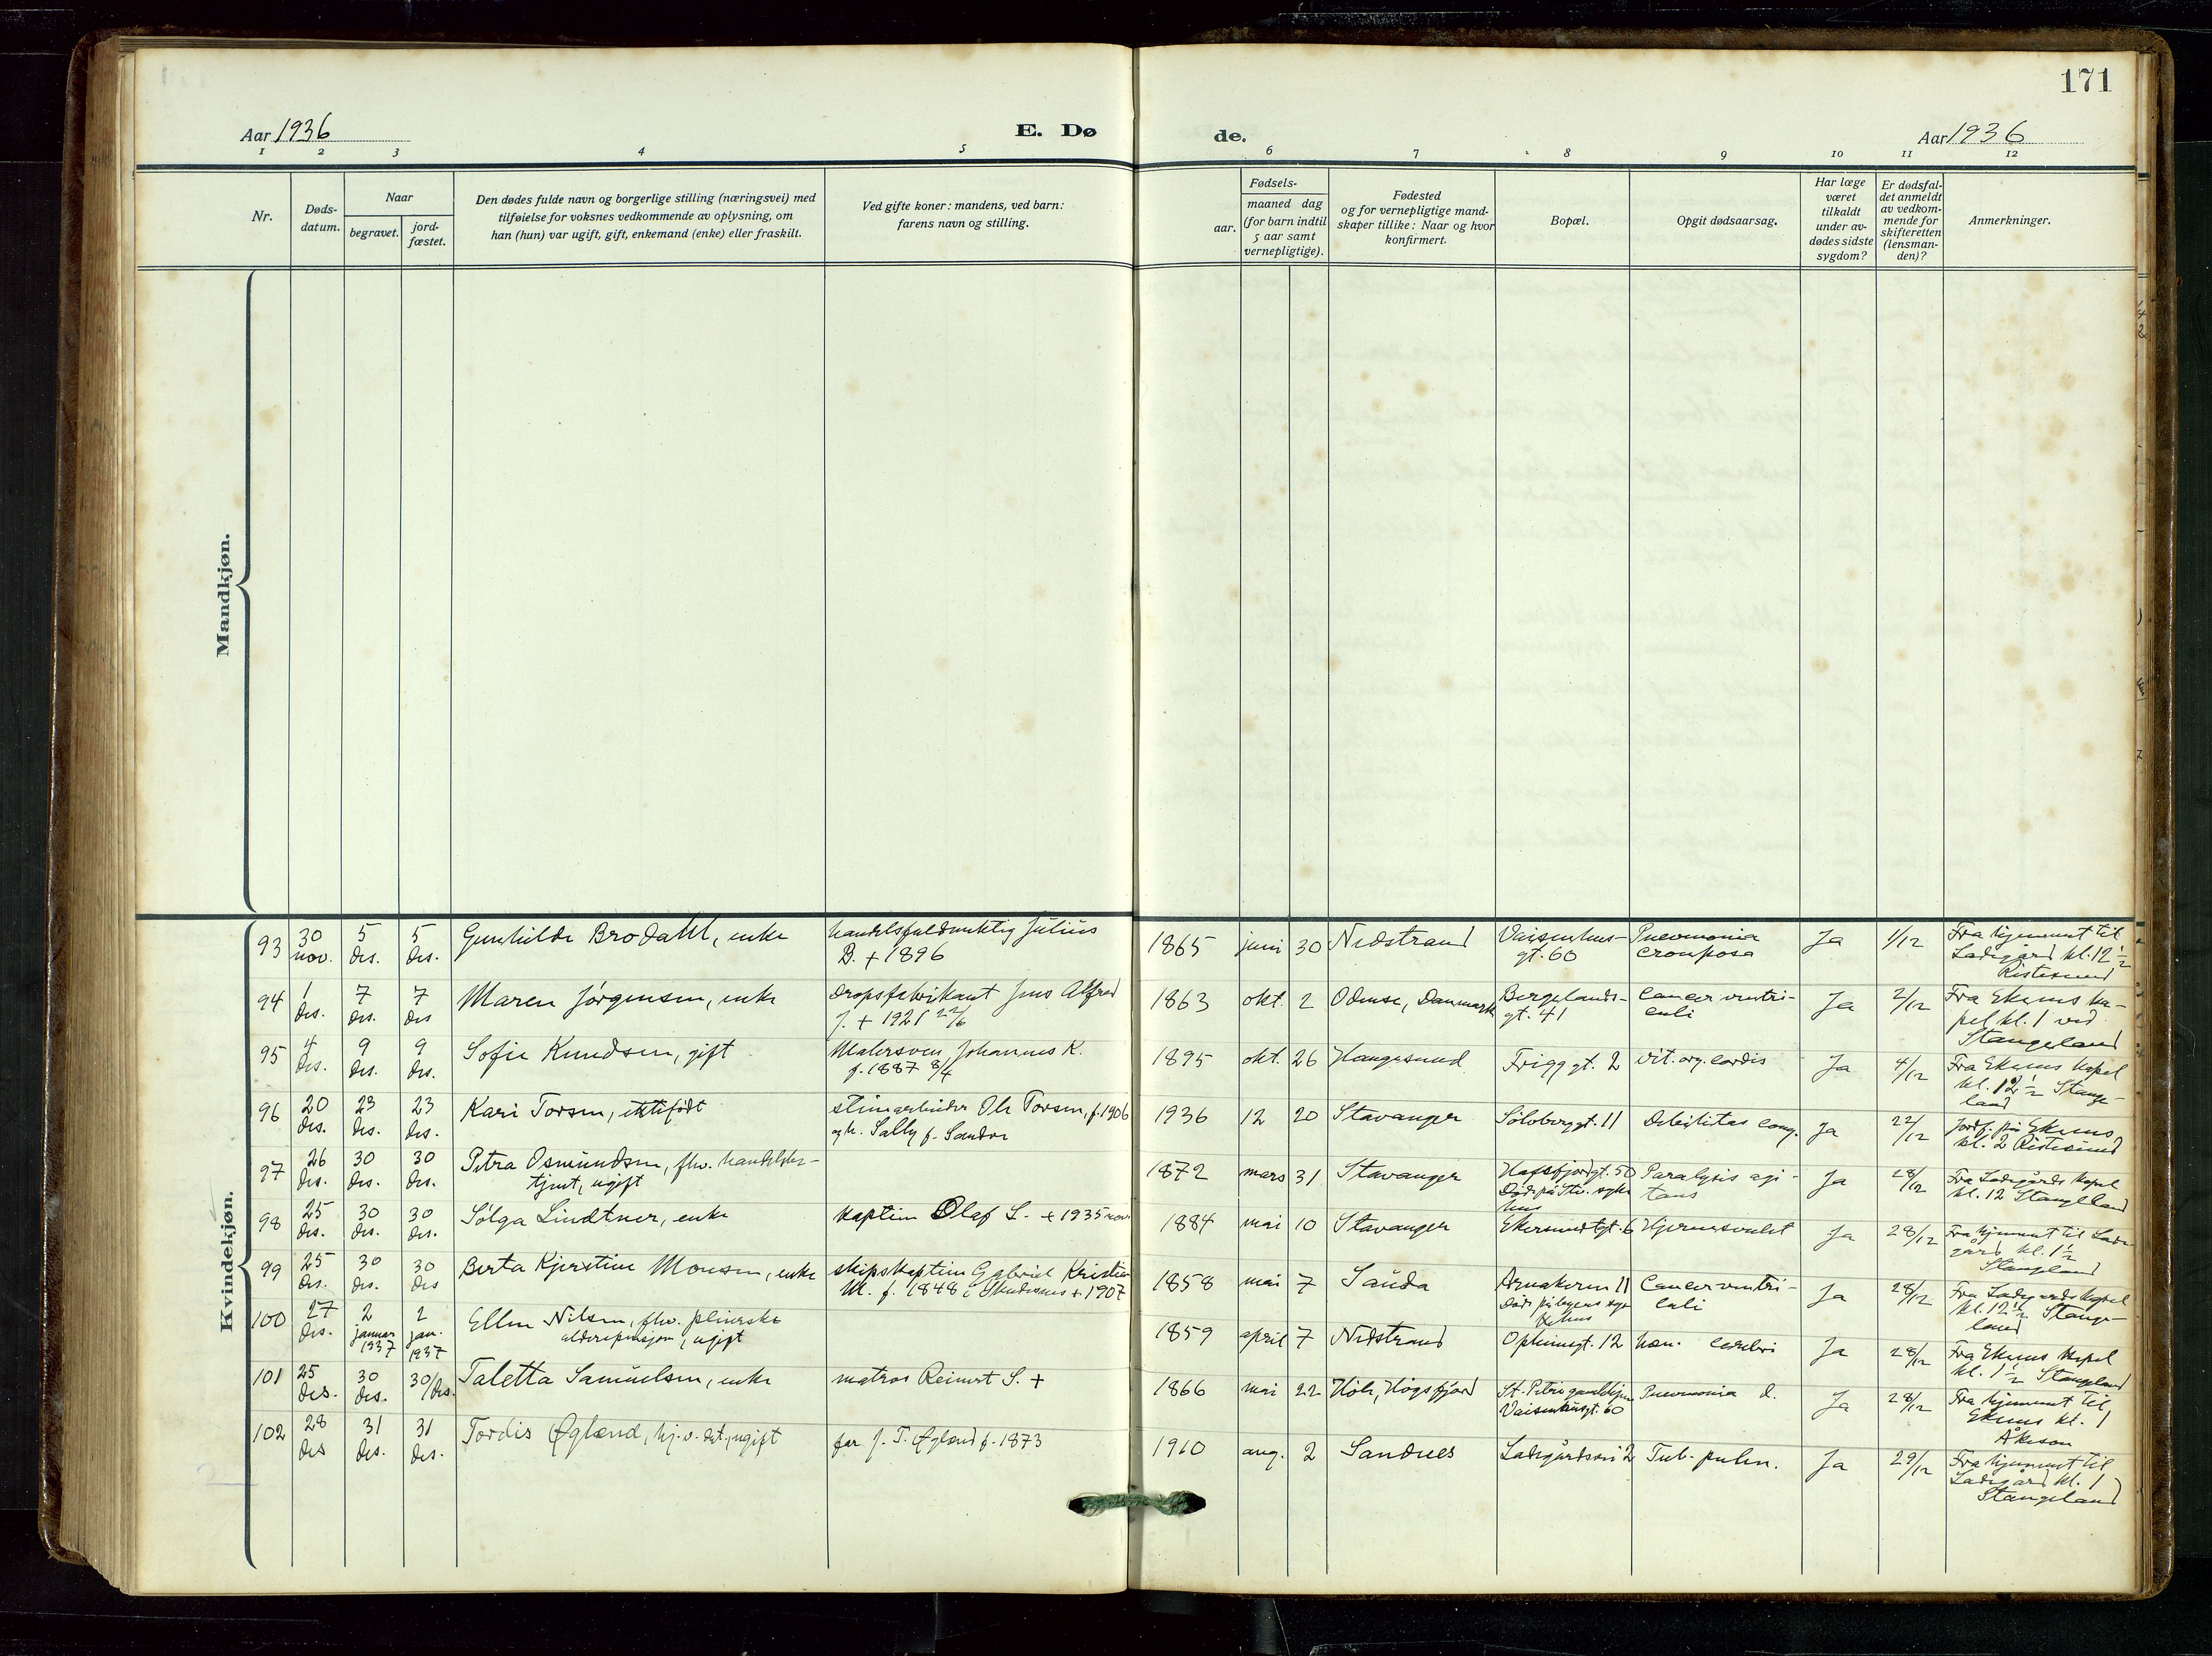 171
Aar 1936
E. Dø
de.
Aar 1936
1 2 3 4 5 6 7 8 9 10 11 12
Nr.
Døds-
datum.
Naar
begravet.
jord-
fæstet.
Den dødes fulde navn og borgerlige stilling (næringsvei) med
tilføielse for voksnes vedkommende av oplysning, om
han (hun) var ugift, gift, enkemand (enke) eller fraskilt.
Ved gifte koner: mandens, ved barn:
farens navn og stilling.
Fødsels-
aar.
maaned dag
(for barn indtil
5 aar samt
vernepligtige).
Fødested
og for vernepligtige mand-
skaper tillike: Naar og hvor
konfirmert.
Bopæl.
Opgit dødsaarsag.
Har læge
været
tilkaldt
under av-
dødes sidste
sygdom?
Er dødsfal-
det anmeldt
av vedkom-
mende for
skifteretten
(lensman-
den)?
Anmerkninger.
Mandkjøn.
Kvindekjøn.
93 30 nov. 5 des. 5 des. Gunhilde Brodahl, enke
handelsfuldmektig Julius
B. + 1896
1865 juni 30 Nedstrand
Vaisenhus-
gt. 60
Pneumonia
crouposa
Ja 1/12
Fra hjemmet til
Ladegård kl. 12 1/2
Ristesund
94 1 des. 7 des. 7 des Maren Jørgensen, enke
dropsfabrikant Jens Alfred
J. + 1921 22/6
1863 okt. 2 Odense, Danmark
Bergelands-
gt. 41
Cancer ventri-
culi
Ja 2/12
Fra Ekenes ka-
pel kl. 1 ved
Stangeland
95 4 des. 9 des. 9 des. Sofie Knudsen, gift
Malersven Johannes K.
f. 1887 8/4
1895 okt. 26 Haugesund
Frigg gt. 2
Vit. org. cordis
Ja 4/12
Fra Ekenes kapel
kl. 12 1/2 Stange-
land
96 20 des. 23 des. 23 des. Kari Torsen, ektefødt
stuearbeider Ole Torsen, f. 1906
og h. Sally f. Sandve
1936 12 20 Stavanger
Sølvberggt. 11
Debilitas cong.
Ja 22/12
Jordf. på Ekenes
kl. 2 Ristesund
97 26 des. 30 des. 30 des. Petra Osmundsen, fhv. handelsbe-
tjent, ugift
1872 mars 31 Stavanger
Hafsfjordgt. 50
Død på Stv. syke
hus
Paralysis agi-
tans
Ja 28/12
Fra Ladegårds kapel
kl. 12 Stangeland
98 25 des. 30 des. 30 des. Sølga Lindtner, enke
kaptein Olaf L. + 1935 nov.
1884 mai 10 Stavanger
Ekersundgt. 6
Hjernesvulst
Ja 28/12
Fra hjemmet til Lade-
gård kl. 1 1/2
Stangeland
99 25 des. 30 des. 30 des Berta Kjerstine Monsen, enke
skipskaptein Gabriel Kristian
M. f. 1848 i Skudesnes + 1907
1858 mai 7 Sauda
11
Cancer ventri-
culi
Ja 28/12
Fra Ladegårds kapel
kl. 12 1/2 Stange-
land
100 27 des. 2 januar 1937 2 jan. 1937 Ellen Nilsen, fhv. pleierske
alderspensjon, ugift
1859 april 7 Nedstrand
Opheimsgt. 12
hæm. cerebri
Ja 28/12
Fra Ekenes kapel
kl. 1 1/2 Stangeland
101 25 des. 30 des. 30/des. Taletta Samuelsen, enke
matros Reinert S. +
1866 mai 22 Høle, Høgsfjord
St. Petri gamlehjem
Vaisenhusgt. 60
Pneumonia d.
Ja 28/12
Fra hjemmet til
Ekenes kl. 1
Åkeson
102 28 des 31 des. 31 des. Tordis Øglænd, hj.v. dat., ugift
far J. T. Øglænd f. 1873
1910 aug. 2 Sandnes
Ladegårdsvei 2
Tub. pulm.
Ja 29/12
Fra hjemmet til
Ladegård kl. 1
Stangeland